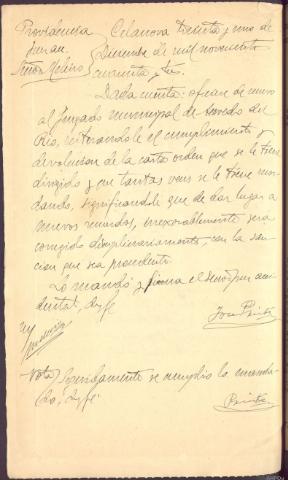 Providencia
Juez
Señor
Celanova treinta y uno de
Diciembre de mil novecientos
cuarenta y
Dada cuenta: ofíciese de nuevo
al Juzgado municipal de Acevedo del
Rio, interesandole el cumplimiento y
devolucion de la carta orden que se le tiene
dirigido y que tantas veces se le tiene recor-
dando, significandole que de dar lugar a
nuevos recuerdos, inexorablemente sera
corregido disciplinariamente, con la san-
cion que sea procedente.
Lo mandó y firma el señor Juez acci-
dental, doy fe
Nota/ Seguidamente se cumplio lo manda-
do, doy fe.